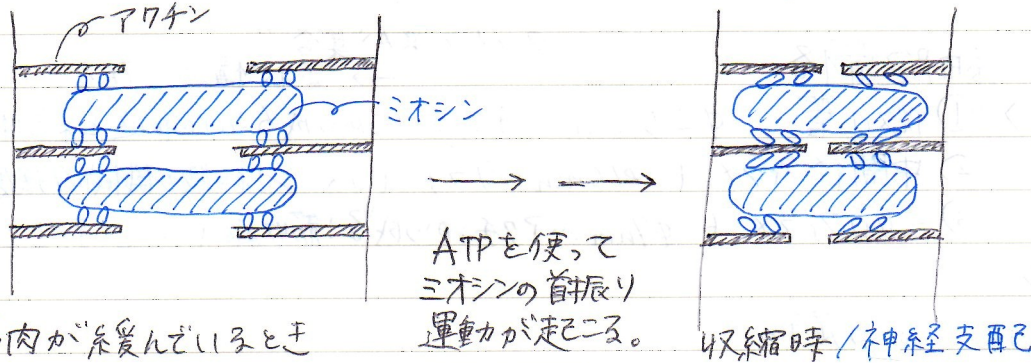 アクチン
ミオシン
ATPを使って
ミオシンの首振り
運動が起こる。
肉が緩んでいるとき
収縮時/神経支配